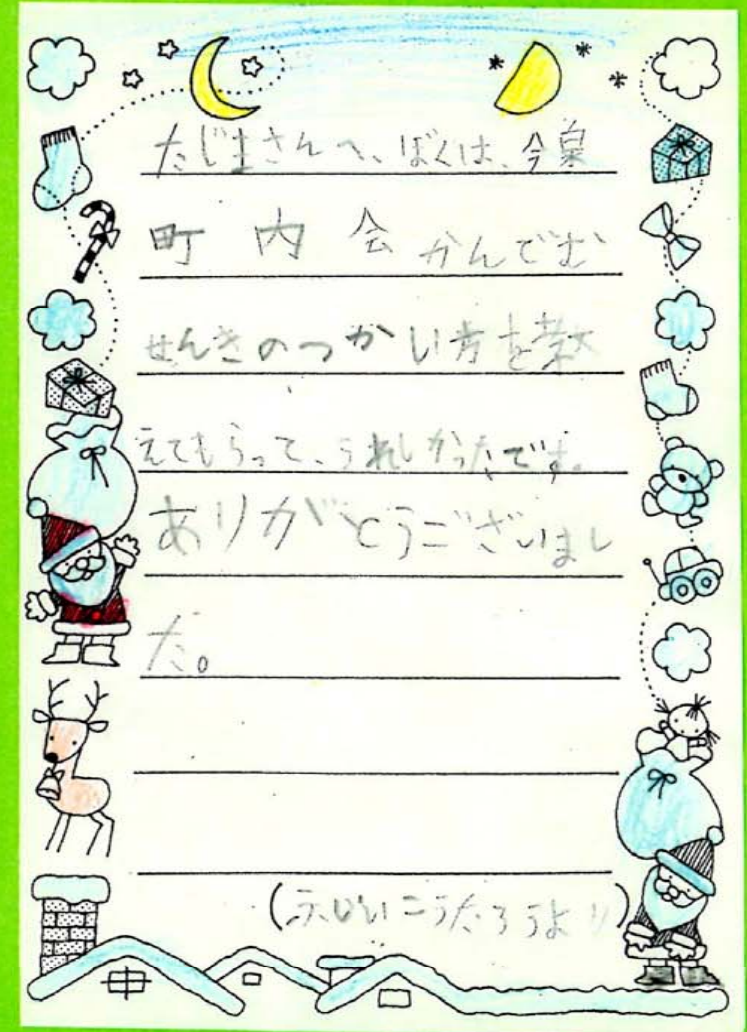 たじまさんへ、ぼくは、今泉
町内会かんでむ
せんきのつかい方を教
えてもらって、うれしかったです。
ありがとうございまし
た。
こうたろうより)